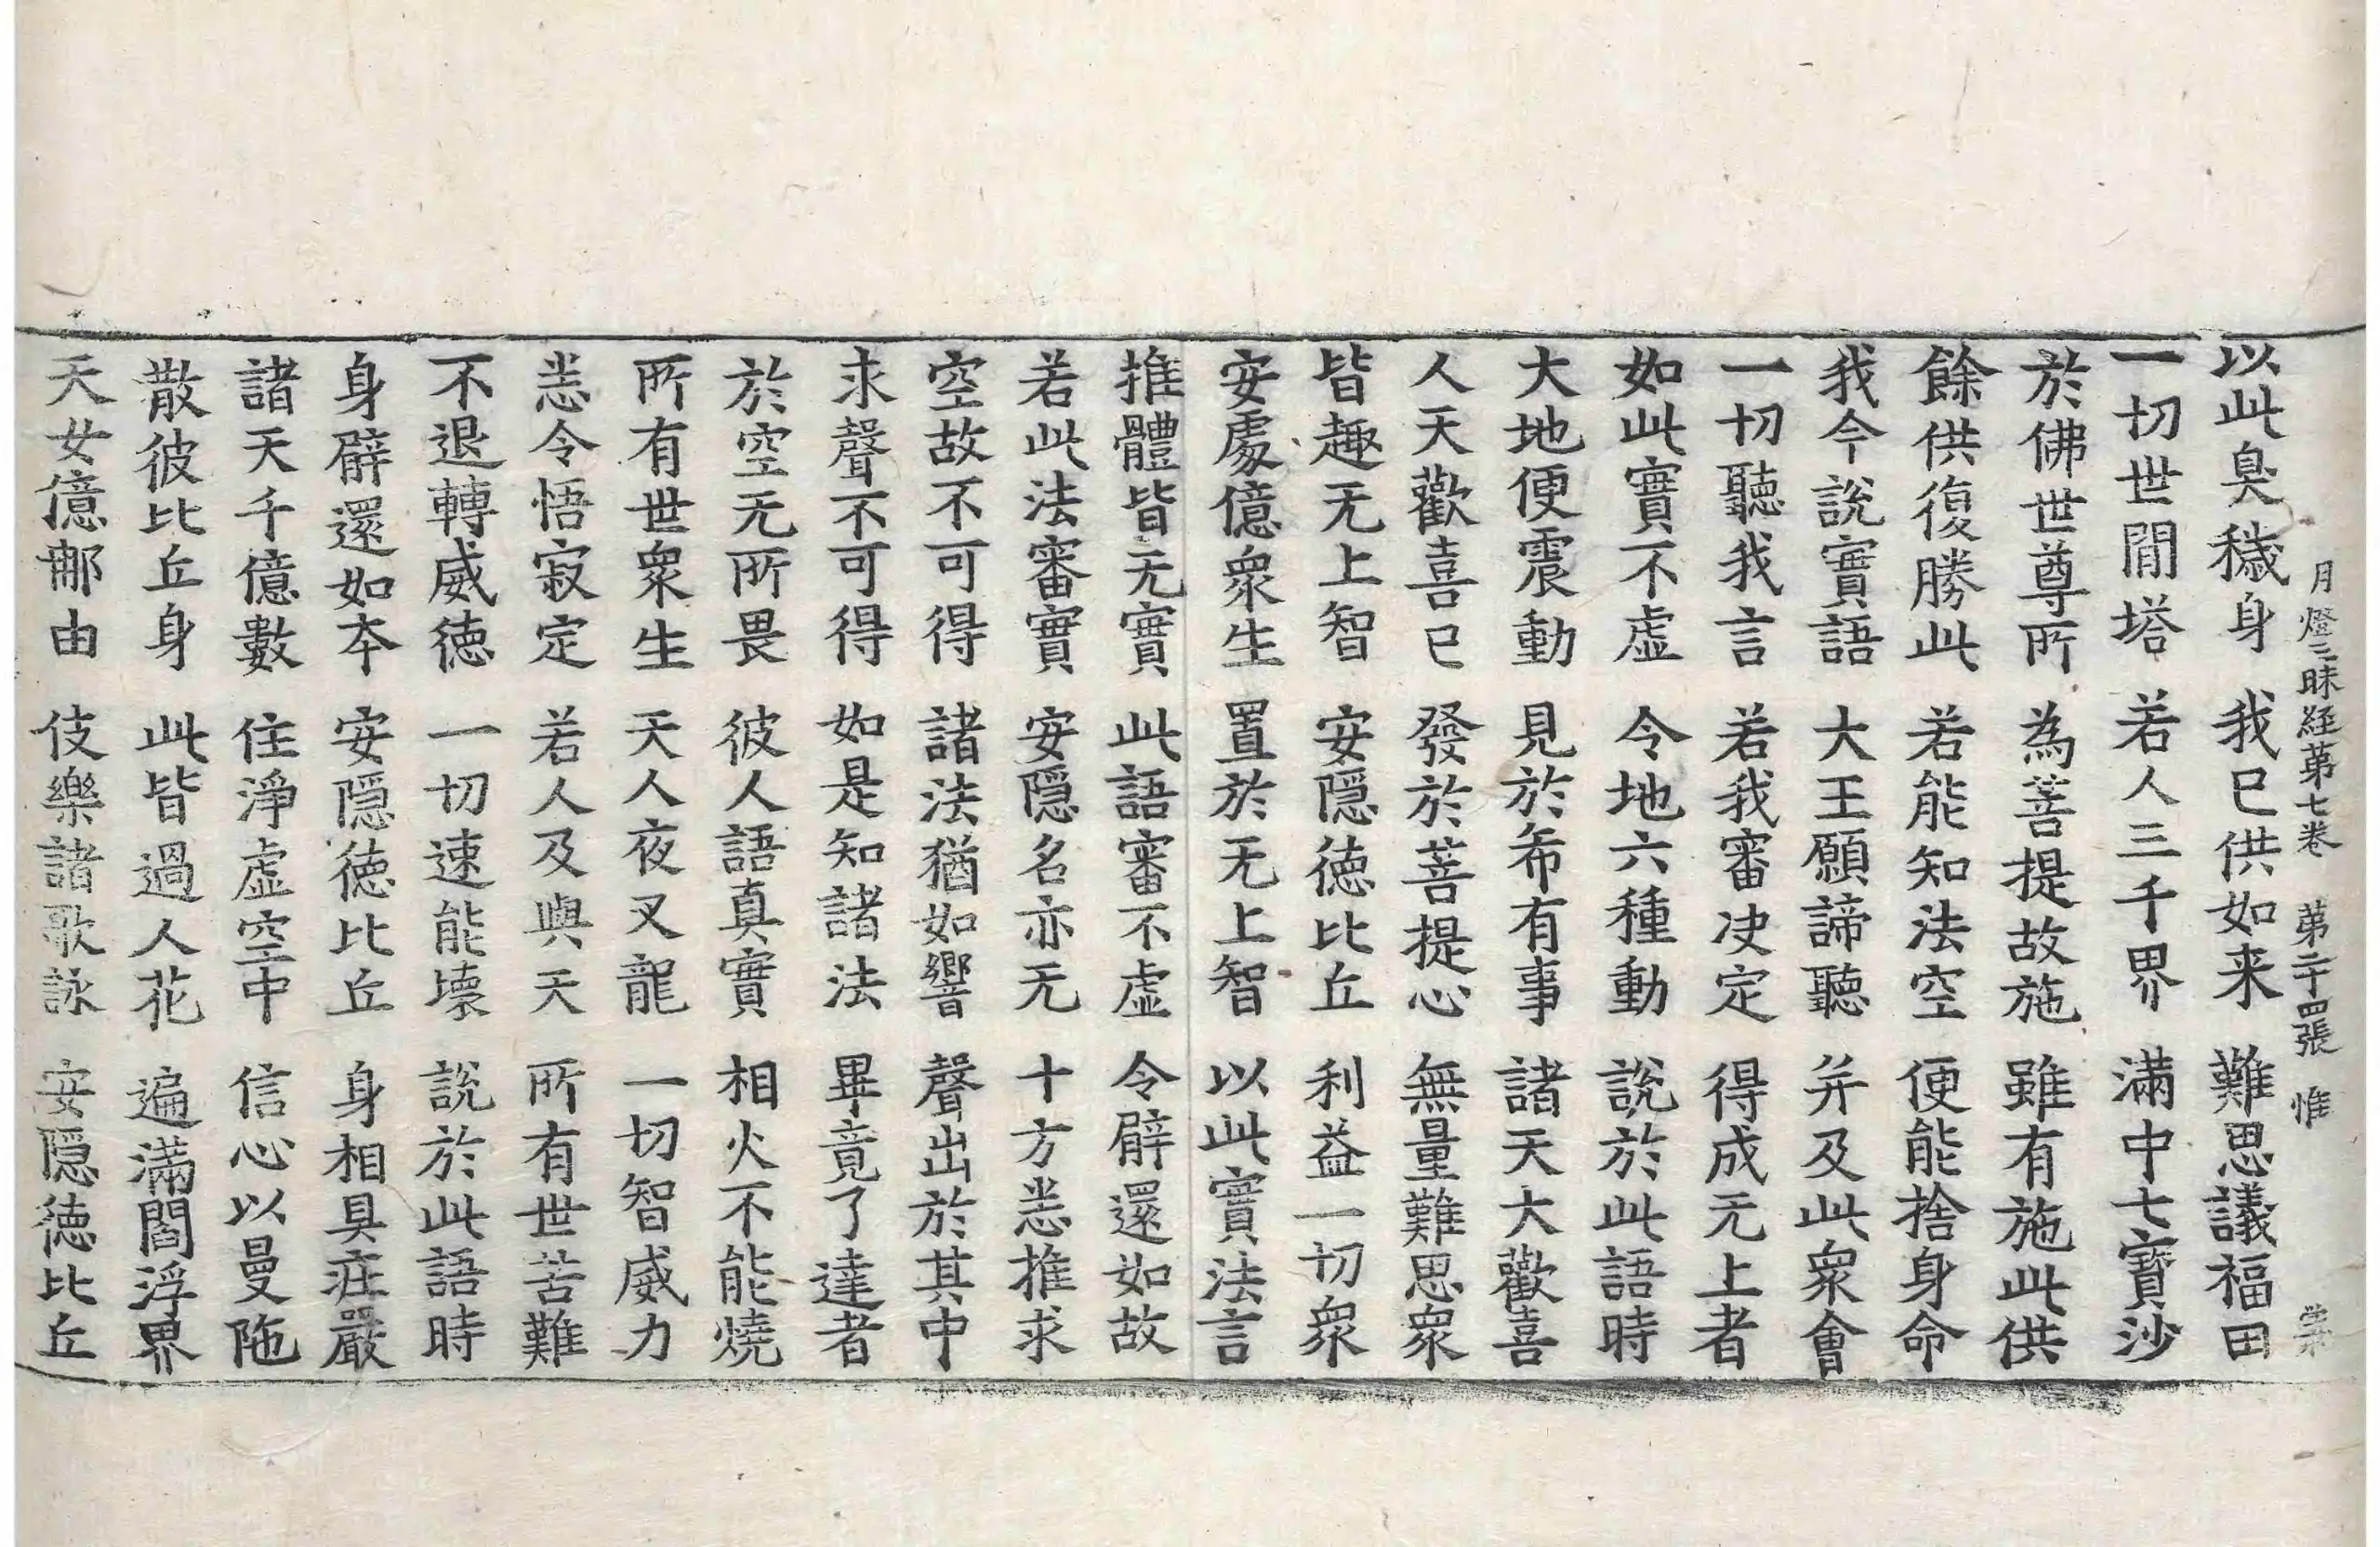 月燈三昧経第七巻　第二十四張　惟
以此臭穢身　我已供如来　難思議福田
一切世閒塔　若人三千界　滿中七寶沙
於佛世尊所　為菩提故施　雖有施此供
餘供復勝此　若能知法空　便能捨身命
我今說實語　大王願諦聽　并及此衆會
一切聽我言　若我審决定　得成无上者
如此實不虛　令地六種動　說於此語時
大地便震動　見於希有事　諸天大歡喜
人天歡喜已　發於菩提心　無量難思衆
皆趣无上智　安隱徳比丘　利益一切衆
安處億衆生　置於无上智　以此實法言
推體皆无實　此語審不虛　令臂還如故
若此法審實　安隱名亦无　十方悉推求
空故不可得　諸法猶如響　聲出於其中
求聲不可得　如是知諸法　畢竟了達者
於空无所畏　彼人語真實　相火不能燒
所有世衆生　天人夜叉龍　一切智威力
悉令悟寂定　若人及與天　所有世苦難
不退轉威徳　一切速能壞　說於此語時
身臂還如本　安隱徳比丘　身相具莊嚴
諸天千億數　住淨虛空中　信心以曼陁
散彼比丘身　此皆過人花　遍滿閻浮界
天女億那由　伎樂諸歌詠　安隱徳比丘